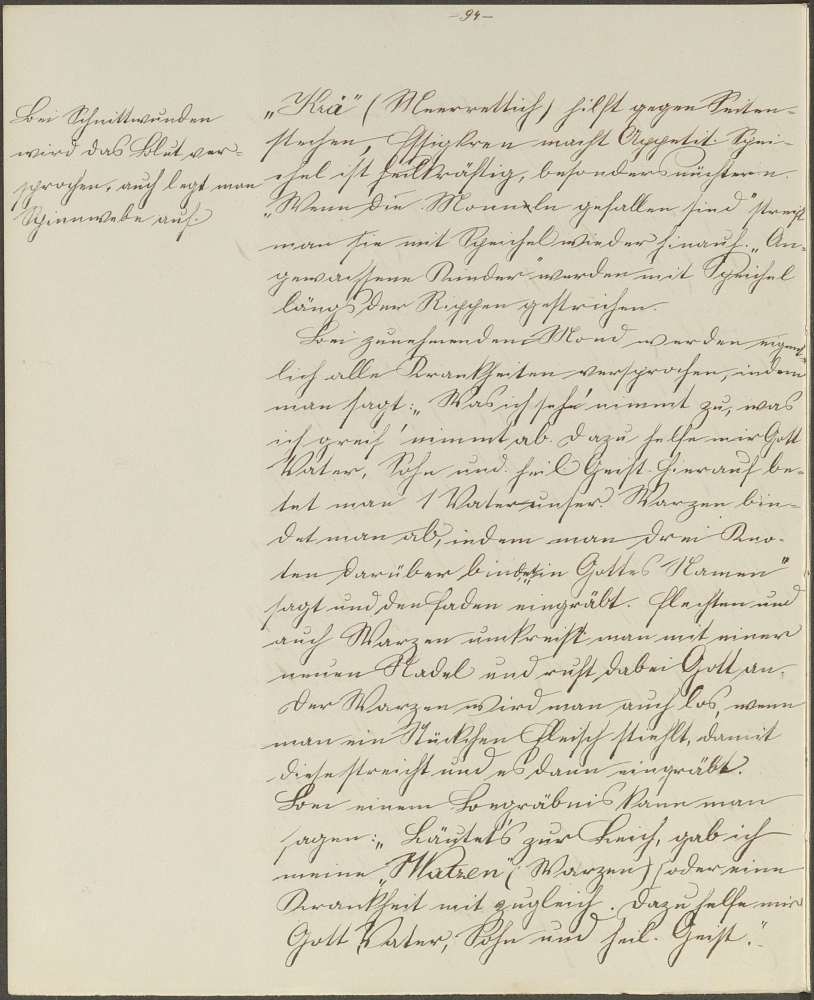 -94-
Bei Schnittwunden
wird das Blut ver-
sprochen, auch legt man
Spinnwebe auf.
„Krä" (Meerrettich) hilft gegen Seiten-
stechen, Essigkren macht Appetit. Spei-
chel ist heilkräftig, besonders nüchtern.
„Wenn die Monneln gefallen sind" streift
man sie mit Speichel wieder hinauf. „An-
gewachsene Kinder" werden mit Speichel
längs der Rippen gestrichen.
Bei zunehmenden Mond werden eigent-
lich alle Krankheiten versprochen, indem
man sagt: „Was ich seh' nimmt zu, was
ich greif' nimmt ab. Dazu helfe mir Gott
Vater, Sohn und heil Geist. Hierauf be-
tet man 1 Vaterunser. Warzen bin-
det man ab, indem man drei Kno-
ten darüber bindet „in Gottes Namen"
sagt und den Faden eingräbt. Flechten und
auch Warzen umkreist man mit einer
neuen Nadel und ruft dabei Gott an.
Der Warzen wird man auch los, wenn
man ein Stückchen Fleisch stiehlt, damit
diese streicht und es dann eingräbt.
Bei einem Begräbnis kann man
sagen: „Läutet's zur Leich, gab ich
meine „Watzen" (Warzen) oder eine
Krankheit mit zugleich. Dazu helfe mir
Gott Vater, Sohn und heil. Geist."